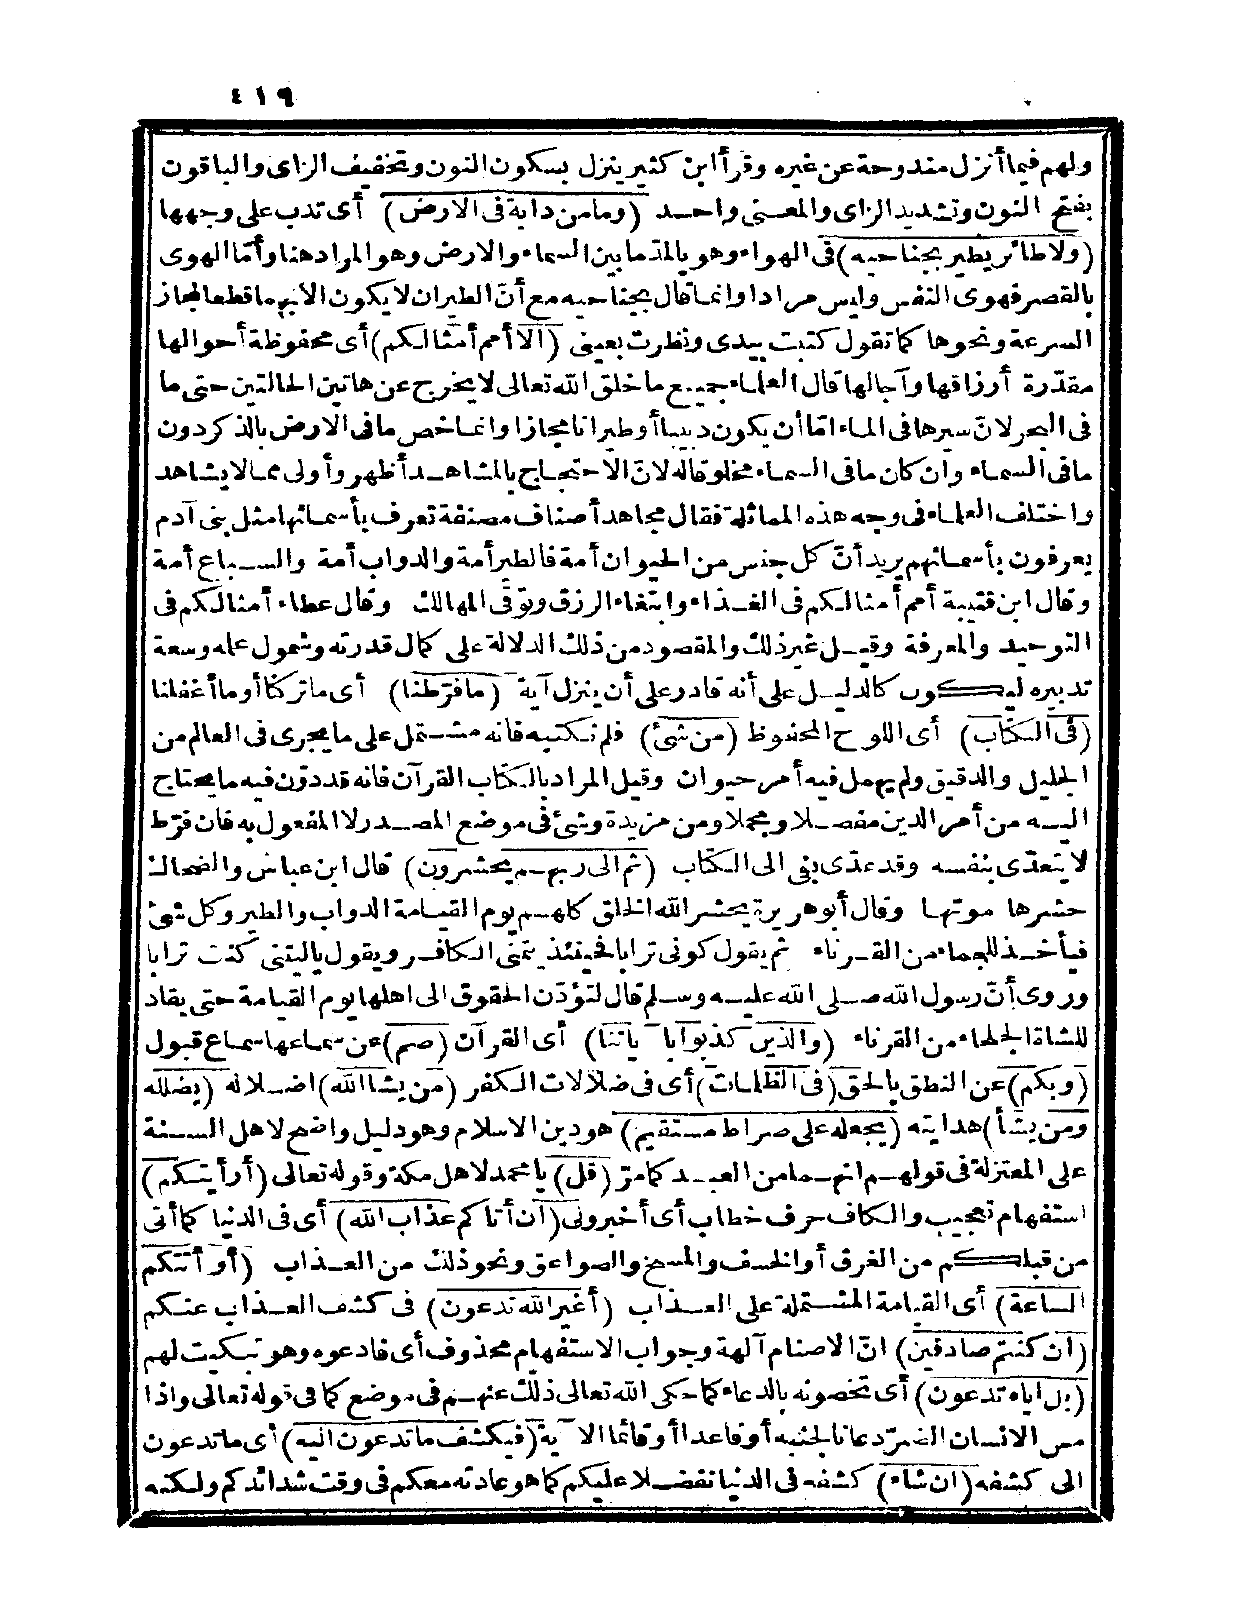 ٤١٩
ولهم فيما أنزل مندوحة عن غيره وقرأ ابن كثير ينزل بسكون النون وتخفيف الزاى والباقون
بفتح النون وتشديد الزاى والمعنى واحد (وما من دابة فى الارض) أى تدب على وجهها
(ولا طائر يطير بجناحيه) فى الهواء وهو بالمد ما بين السماء والارض وهو المراد هنا وأما الهوى
بالقصر فهوى النفس وليس مرادا وانما قال بجناحيه مع أنّ الطيران لا يكون الا بهما قطعا لمجاز
السرعة ونحوها كما تقول كتبت بيدى ونظرت بعينى (الا أمم أمثالكم) أى محفوظة أحوالها
مقدّرة أرزاقها وآجالها قال العلماء جميع ما خلق الله تعالى لا يخرج عن هاتين الحالتين حتى ما
فى البحر لانّ سيرها فى الماء امّا أن يكون دبيبا أو طيرانا مجازا وانما خص ما فى الارض بالذكر دون
ما فى السماء وان كان ما فى السماء مخلوقا له لانّ الاحتجاج بالمشاهد أظهر وأولى مما لا يشاهد
واختلف العلماء فى وجه هذه المماثلة فقال مجاهد أصناف مصنفة تعرف بأسمائها مثل بنى آدم
يعرفون بأسمائهم يريد أنّ كل جنس من الحيوان أمة فالطير أمة والدواب أمة والسباع أمة
وقال ابن قتيبة أمم أمثالكم فى الغذاء وابتغاء الرزق وتوقى المهالك وقال عطاء أمثالكم فى
التوحيد والمعرفة وقيل غير ذلك والمقصود من ذلك الدلالة على كمال قدرته وشمول علمه وسعة
تدبيره ليكون كالدليل على أنه قادر على أن ينزل آية (ما فرّطنا) أى ما تركنا أو ما أغفلنا
(فى الكتاب) أى اللوح المحفوظ (من شئ) فلم نكتبه فانه مشتمل على ما يجرى فى العالم من
الجليل والدقيق ولم يهمل فيه أمر حيوان وقيل المراد بالكتاب القرآن فانه قد دوّن فيه ما يحتاج
اليه من أمر الدين مفصلا ومجملا ومن مزيدة وشئ فى موضع المصدر لا المفعول به فان فرّط
لا يتعدّى بنفسه وقد عدّى بفى الى الكتاب (ثم الى ربهم يحشرون) قال ابن عباس والضحاك
حشرها موتها وقال أبو هريرة يحشر الله الخلق كلهم يوم القيامة الدواب والطير وكل شئ
فيأخذ للجماء من القرناء ثم يقول كونى ترابا فحينئذ يتمنى الكافر ويقول ياليتنى كنت ترابا
وروى أنّ رسول الله صلى الله عليه وسلم قال لتؤدّن الحقوق الى اهلها يوم القيامة حتى يقاد
للشاة الجلحاء من القرناء (والذين كذبوا بآياتنا) أى القرآن (صم) عن سماعها سماع قبول
(وبكم) عن النطق بالحق (فى الظلمات) أى فى ضلالات الكفر (من يشا الله) اضلاله (يضلله
ومن يشأ) هدايته (يجعله على صراط مستقيم) هو دين الاسلام وهو دليل واضح لاهل السنة
على المعتزلة فى قولهم انهما من العبد كما مرّ (قل) يا محمد لاهل مكة وقوله تعالى (أرأيتكم)
استفهام تعجيب والكاف حرف خطاب أى أخبرونى (ان أتاكم عذاب الله) أى فى الدنيا كما أتى
من قبلكم من الغرق أو الخسف والمسخ والصواعق ونحو ذلك من العذاب (أو أتتكم
الساعة) أى القيامة المشتملة على العذاب (أغير الله تدعون) فى كشف العذاب عنكم
(ان كنتم صادقين) انّ الاصنام آلهة وجواب الاستفهام محذوف أى فادعوه وهو تبكيت لهم
(بل اياه تدعون) أى تخصونه بالدعاء كما حكى الله تعالى ذلك عنهم فى موضع كما فى قوله تعالى واذا
مس الانسان الضرّ دعانا لجنبه أو قاعدا أو قائما الآية (فيكشف ما تدعون اليه) أى ما تدعون
الى كشفه (ان شاء) كشفه فى الدنيا تفضلا عليكم كما هو عادته معكم فى وقت شدائدكم ولكنه